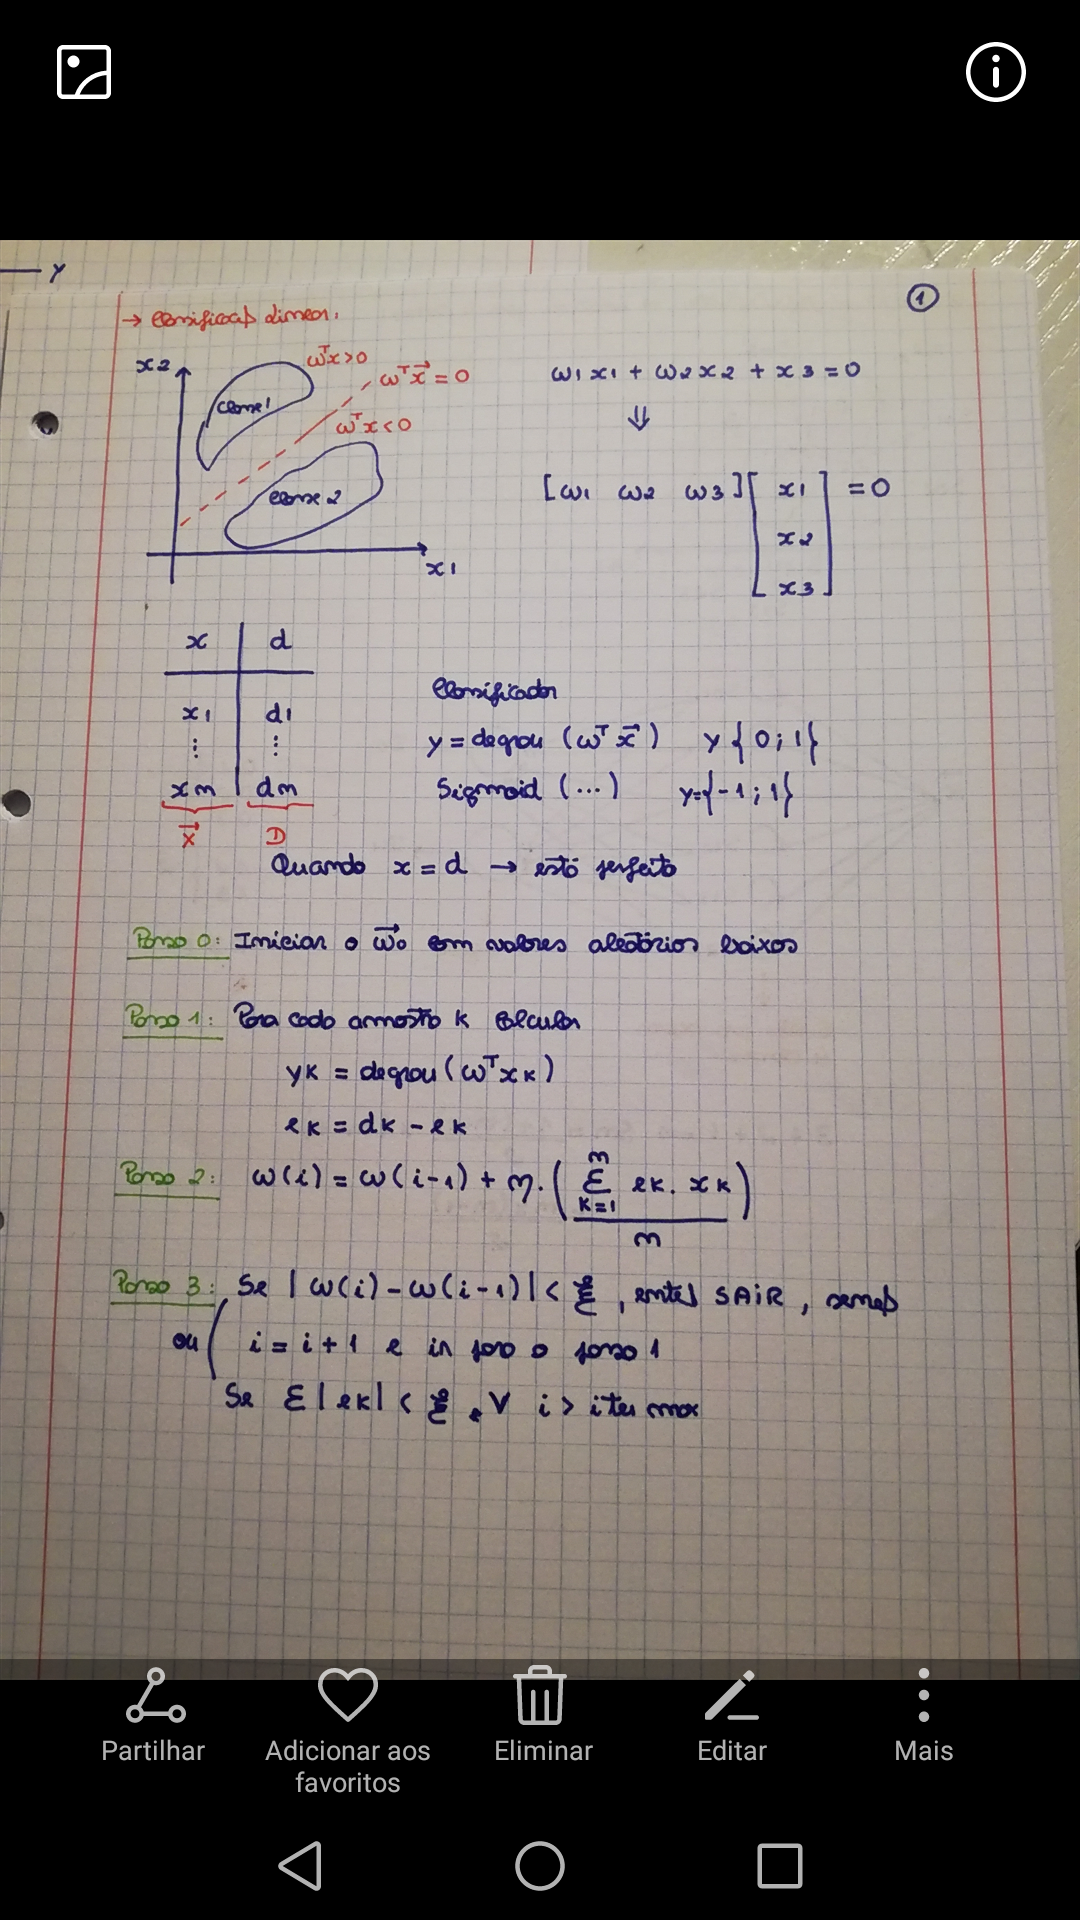 Y
1
→ Classificação linear.
x2
ωᵀx>0
ωᵀx⃗ = 0
ωᵀx<0
classe 1
classe 2
x1
ω1 x1 + ω2 x2 + x3 = 0
⇓
[ω1 ω2 ω3] [x1 = 0
x2
x3]
x d
x1 d1
⋮ ⋮
xm dm
x⃗ D
Classificador
y = degrau (ωᵀ x⃗) y {0;1}
Sigmoid (...) y={-1;1}
Quando x = d → está perfeito
Passo 0: Iniciar o ω⃗0 com valores aleatórios baixos
Passo 1: Para cada amostra k calcular
yk = degrau (ωᵀxk)
ek = dk - ek
Passo 2: ω(i) = ω(i-1) + η. (Σ ek. xk)
m
k=1
m
Passo 3: Se |ω(i) - ω(i-1)| < ξ, então SAIR, senão
ou ( i = i + 1 e ir para o passo 1
Se Σ|ek| < ξ, V i > iter max
Partilhar
Adicionar aos
favoritos
Eliminar
Editar
Mais